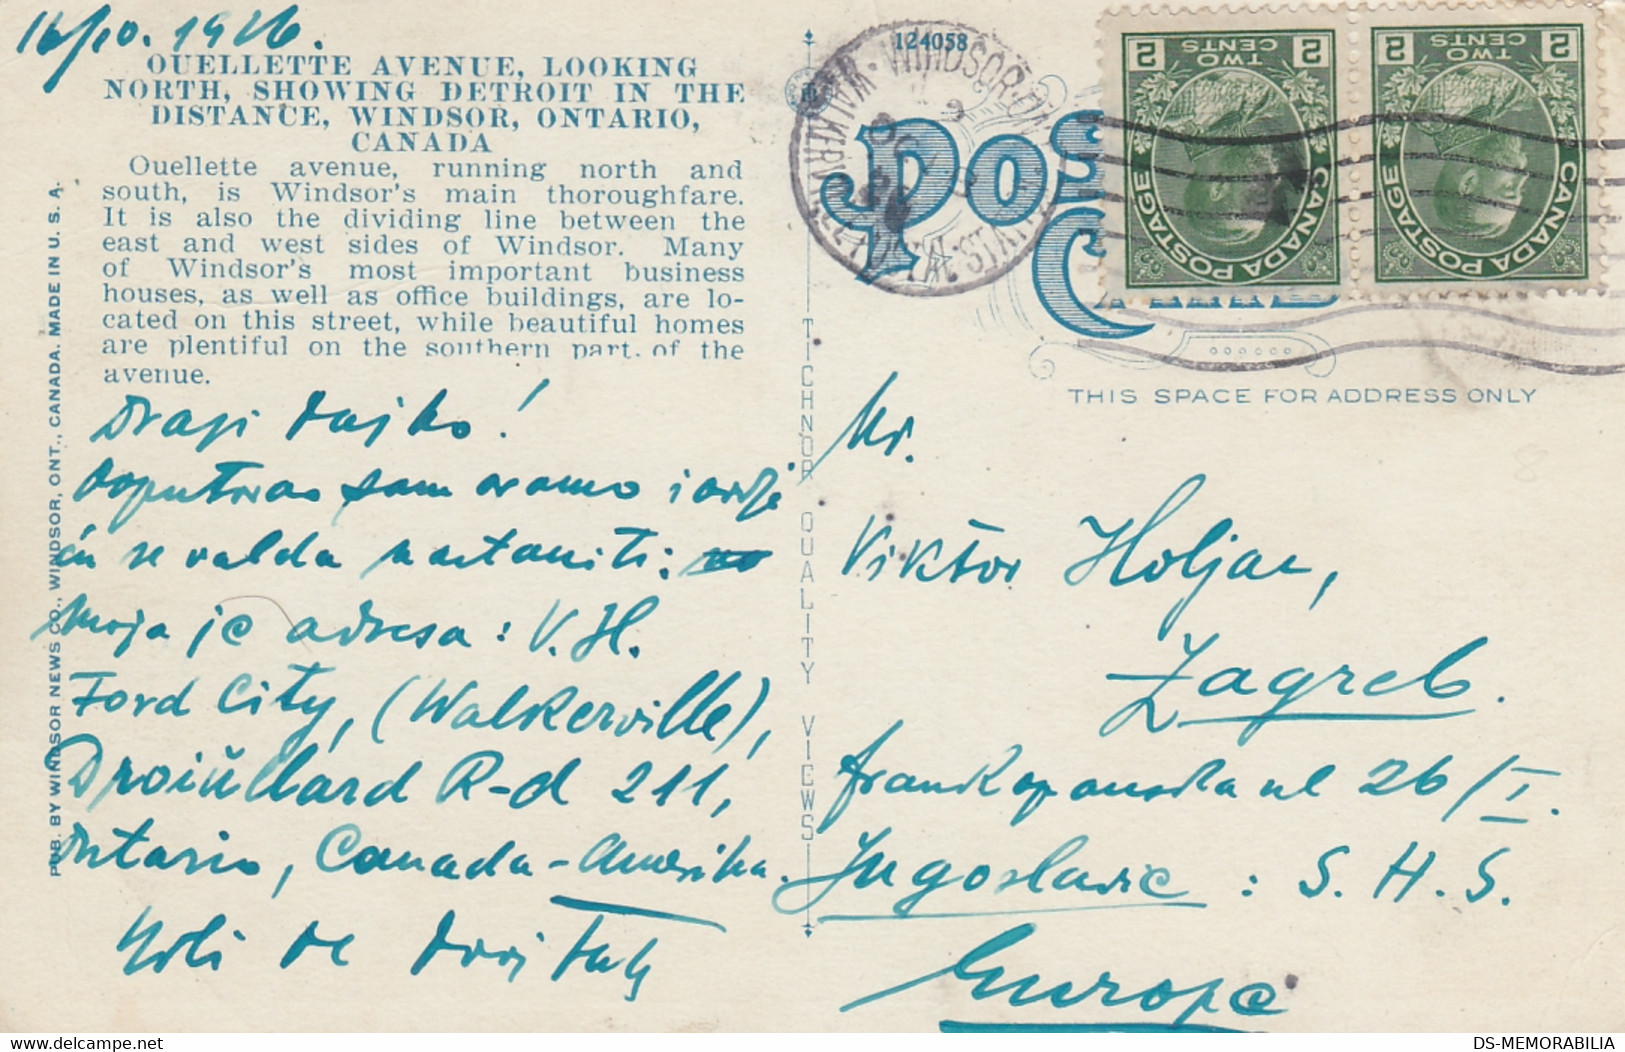 16/10. 1926.
OUELLETTE AVENUE, LOOKING
NORTH, SHOWING DETROIT IN THE
DISTANCE, WINDSOR, ONTARIO,
CANADA
Ouellette avenue, running north and
south, is Windsor's main thoroughfare.
It is also the dividing line between the
east and west sides of Windsor. Many
of Windsor's most important business
houses, as well as office buildings, are lo-
cated on this street, while beautiful homes
are plentiful on the southern part of the
avenue.
PUB. BY WINDSOR NEWS CO., WINDSOR, ONT., CANADA. MADE IN U. S. A.
Dragi Rajko!
Doputovao sam ovamo i ovdje
ću se valda nastaniti:
moja je adresa: V. H.
Ford City, (Walkerville),
Droiullard R-d 211,
Ontario, Canada-Amerika.
Voli te tvoj
TICHNOR QUALITY VIEWS
124058
WINDSOR
POST
CANADA POSTAGE
2 TWO CENTS 2
CANADA POSTAGE
2 TWO CENTS 2
THIS SPACE FOR ADDRESS ONLY
8
Mr.
Viktor Holjac,
Zagreb.
Frankopanska ul 26/I.
Jugoslavie: S. H. S.
Europe
DS-MEMORABILIA